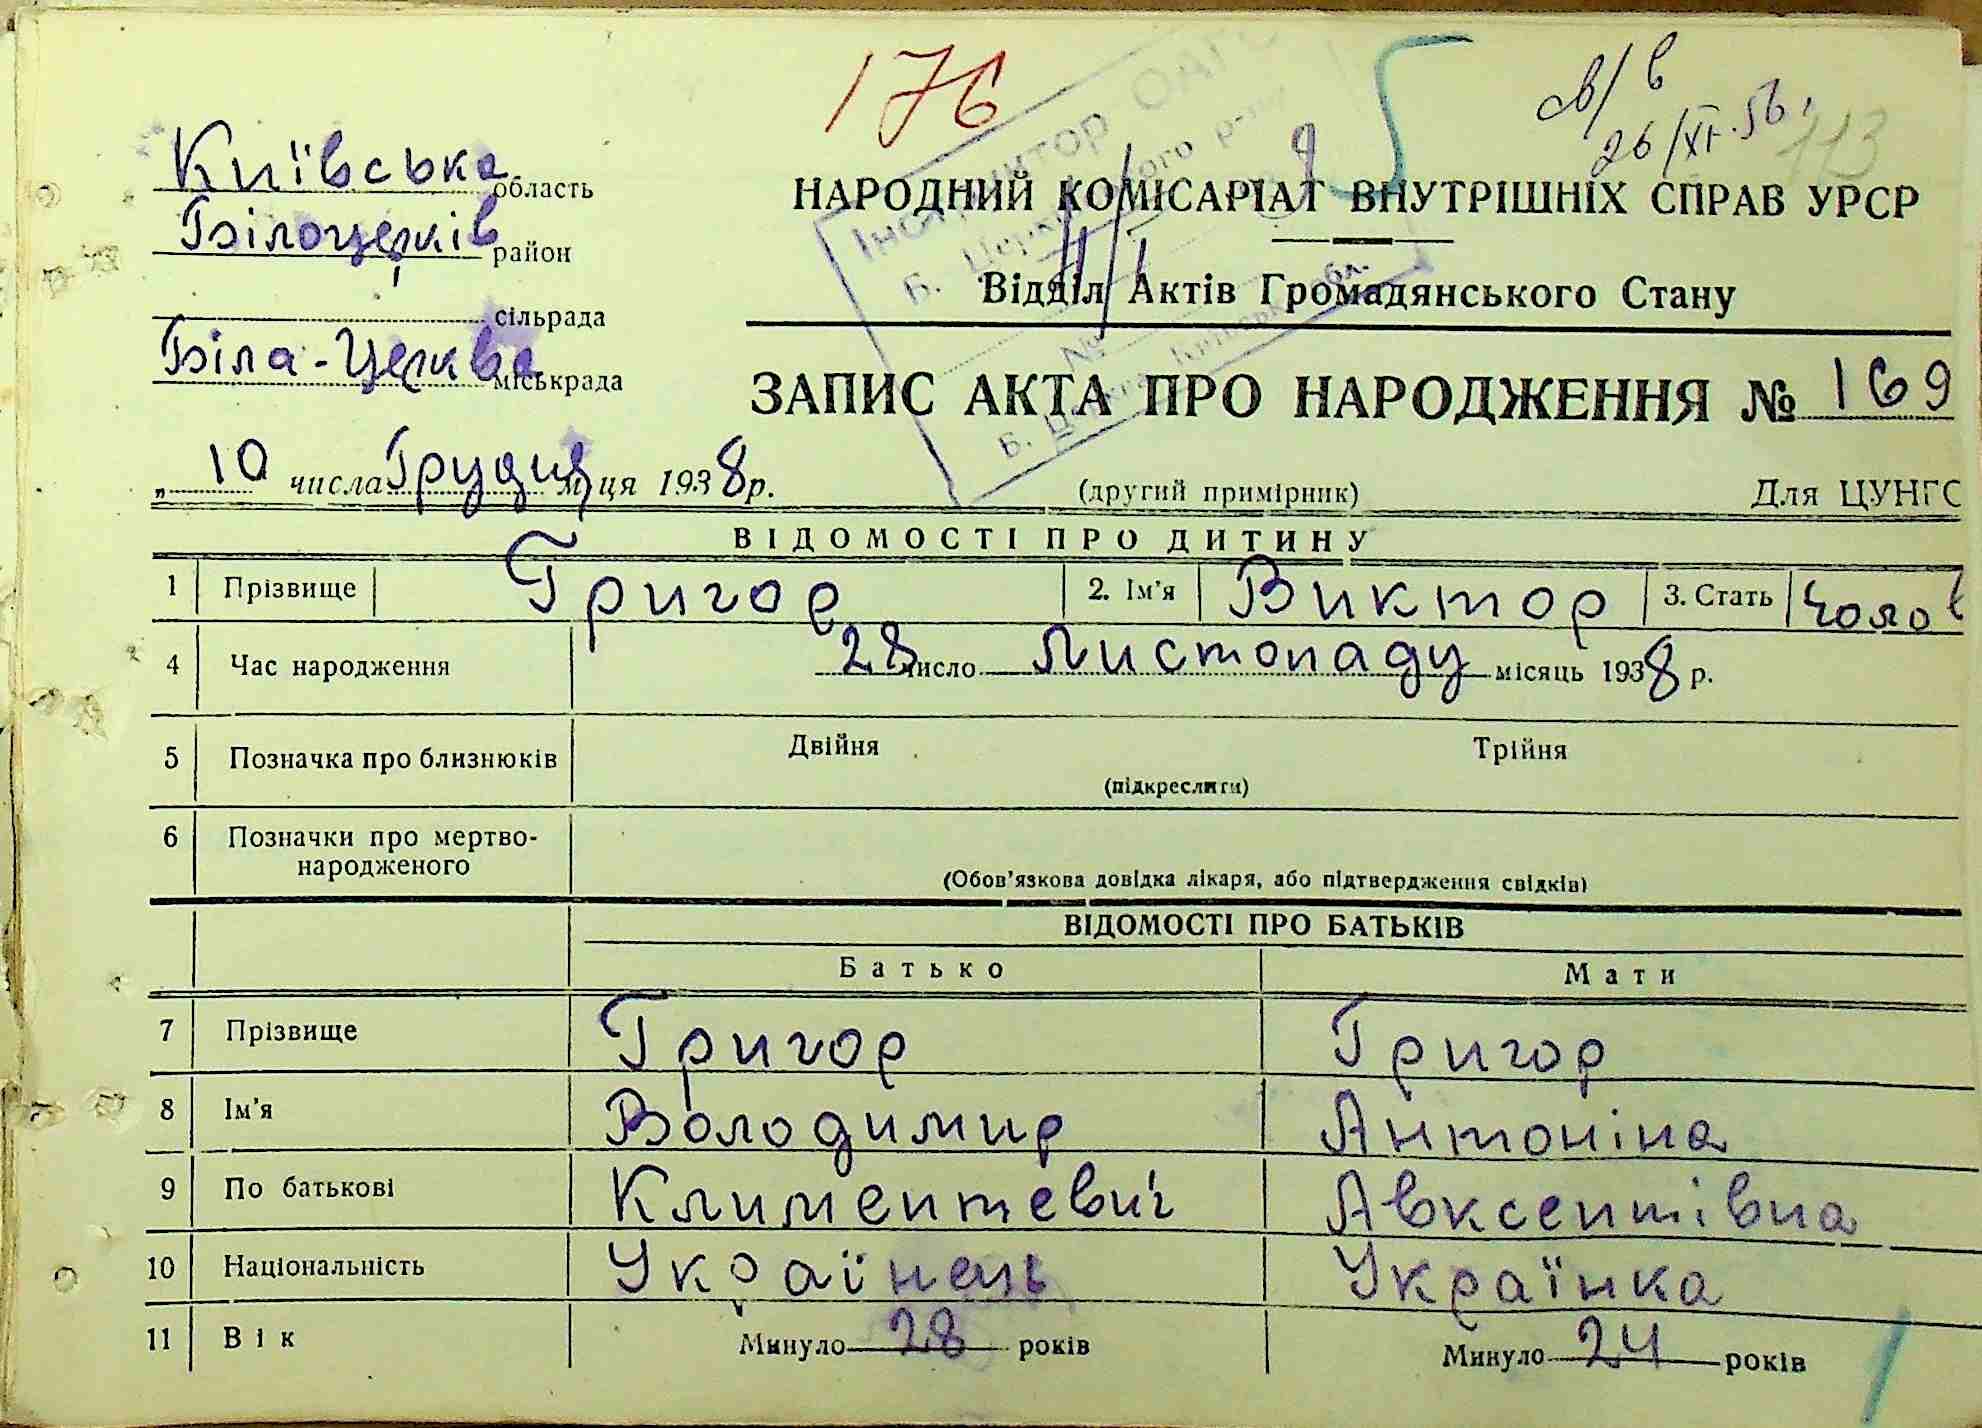 176
5
в/в
26/XI.56.
113
Київська область
Білоцерків район
сільрада
Біла-Церква міськрада
НАРОДНИЙ КОМІСАРІАТ ВНУТРІШНІХ СПРАВ УРСР
Відділ Актів Громадянського Стану
ЗАПИС АКТА ПРО НАРОДЖЕННЯ № 169
„ 10 числа Грудня м-ця 1938 р.
(другий примірник)
Для ЦУНГС
ВІДОМОСТІ ПРО ДИТИНУ
1 Прізвище Григор 2. Ім'я Виктор 3. Стать Чолов
4 Час народження 28 число Листопаду місяць 1938 р.
5 Позначка про близнюків Двійня Трійня
(підкреслити)
6 Позначки про мертво-
народженого
(Обов'язкова довідка лікаря, або підтвердження свідків)
ВІДОМОСТІ ПРО БАТЬКІВ
Батько Мати
7 Прізвище Григор Григор
8 Ім'я Володимир Антоніна
9 По батькові Климентевич Авксентівна
10 Національність Українець Українка
11 Вік Минуло 28 років Минуло 24 років